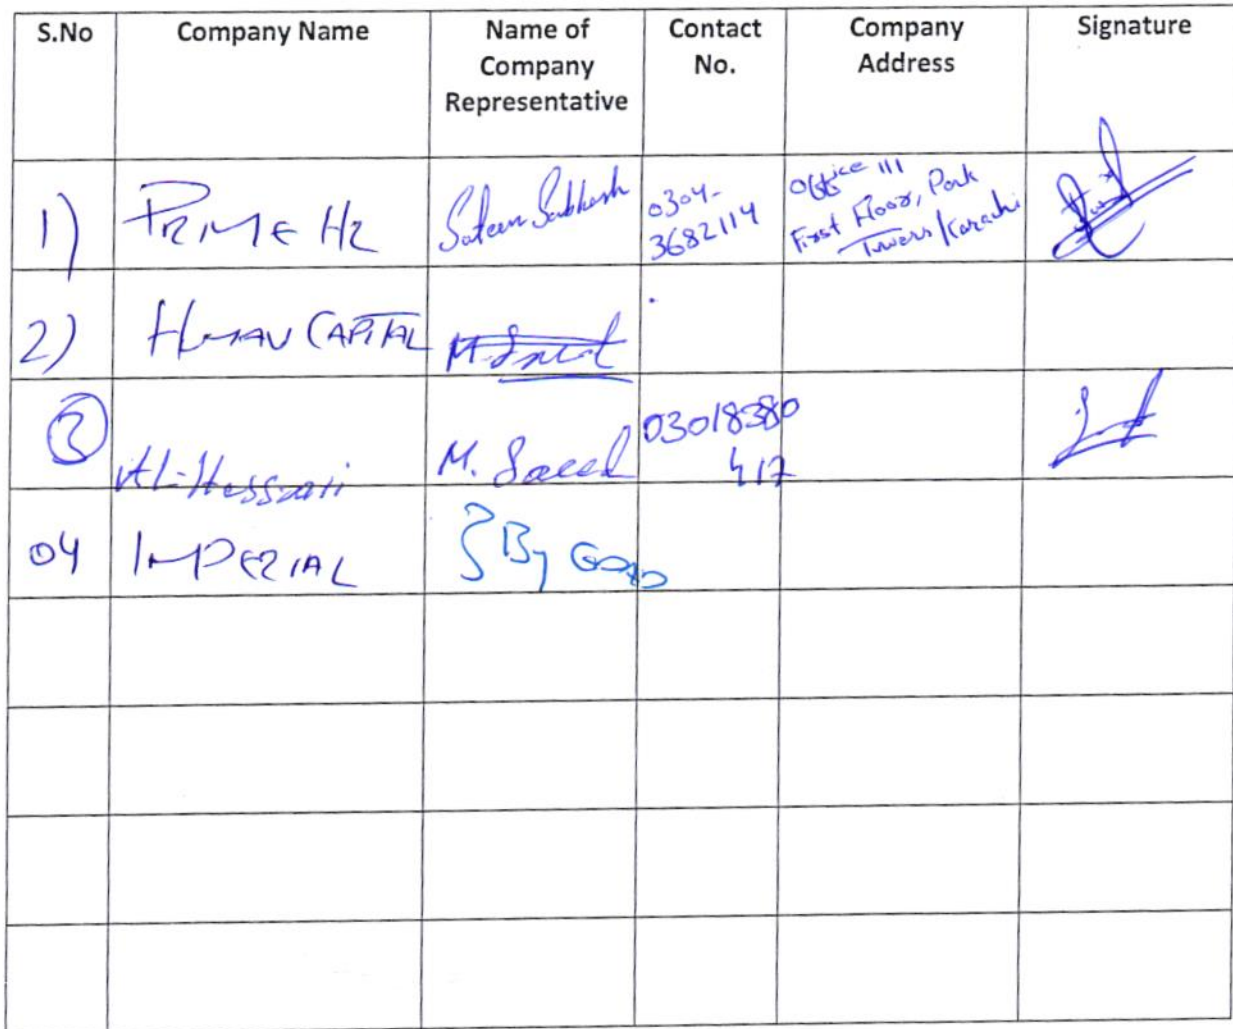 S.No Company Name Name of Company Representative Contact No. Company Address Signature
1) PRIME HR Sateen Subhash 0304-3682114 Office 111 First Floor, Park Towers/Karachi
2) HUMAN CAPITAL
3 Al-Hussaini M. Saeed 03018380417
04 IMPERIAL By